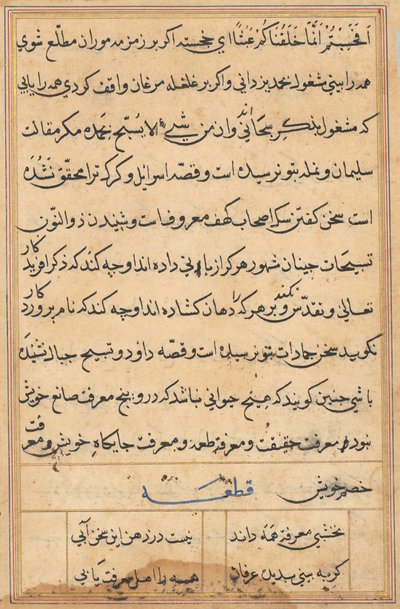 افحسبتم انما خلقناکم عبثا ای خجسته اگر بر زمزمه موران مطلع شوی
همه را بینی مشغول تحمید یزدانی و اگر بر غلغله مرغان واقف گردی همه را یابی
که مشغول بذکر سبحانی اند وان من شیء الا یسبح بحمده مگر مقالت
سلیمان و نمله بتو نرسیده است و قصه اسرائیل و کرکه ترا محقق نشده
است سخن گفتن سگ اصحاب کهف معروف است و شنیدن ذوالنون
تسبیحات چنان مشهور هر کرا زبانی داده اند او چه کند که ذکر آفریدکار
تعالی و تقدس نکند و بر هر که دهان گشاده اند او چه کند که نام پروردکار
نگوید سخن جمادات بتو رسیده است و قصه داود و تسبیح جبال شنیده
باشی چنین گویند که هیچ حیوانی نباشد که درو پنج معرفت صانع خویش
بود و معرفت حقیقت و معرفت طعمه و معرفت جایکاه خویش و معرفت
خصم خویش قطعه
نخشبی معرفة همه دانند نیست در ذهن این سخن آبی
گر به بینی بدیده عرفان همه را اهل معرفت یابی